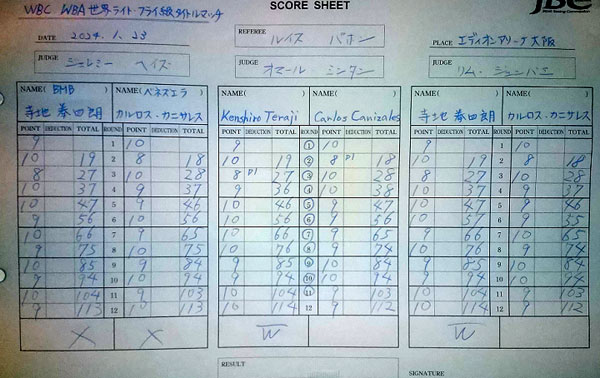 WBC WBA 世界ライト・フライ級タイトルマッチ
SCORE SHEET
JBC
DATE 2024. 1. 23
REFEREE
ルイス パボン
PLACE エディオンアリーナ大阪
JUDGE ジェレミー ヘイズ
JUDGE オマール ミンタン
JUDGE リム・ジュンバエ
NAME( BMB ) NAME( ベネズエラ )
寺地 拳四朗 カルロス・カニサレス
NAME( ) NAME( )
Kenshiro Teraji Carlos Canizales
NAME( ) NAME( )
寺地 拳四朗 カルロス・カニサレス
POINT DEDUCTION TOTAL ROUND POINT DEDUCTION TOTAL
9 1 10
10 19 2 8 18
8 27 3 10 28
10 37 4 9 37
10 47 5 9 46
9 56 6 10 56
10 66 7 9 65
9 75 8 10 75
10 85 9 9 84
9 94 10 10 94
10 104 11 9 103
9 113 12 10 113
× ×
POINT DEDUCTION TOTAL ROUND POINT DEDUCTION TOTAL
9 1 10
10 19 2 8 18
8 27 3 10 28
9 36 4 10 38
10 46 5 9
9 56 6
10 66 7 9 65
10 76 8 9 74
9 10 84
9 94 10 10 94
10 104 11 9 103
10 114 12 9 112
W
POINT DEDUCTION TOTAL ROUND POINT DEDUCTION TOTAL
9 1 10
10 19 2 8 18
8 27 3 10 28
10 37 4 9 37
10 47 5 9 46
10 57 6 9
9 66 7 10 65
10 76 8 9 74
9 85 9 10 84
9 94 10 10 94
10 104 11 9 103
10 114 12 9 112
W
RESULT
SIGNATURE